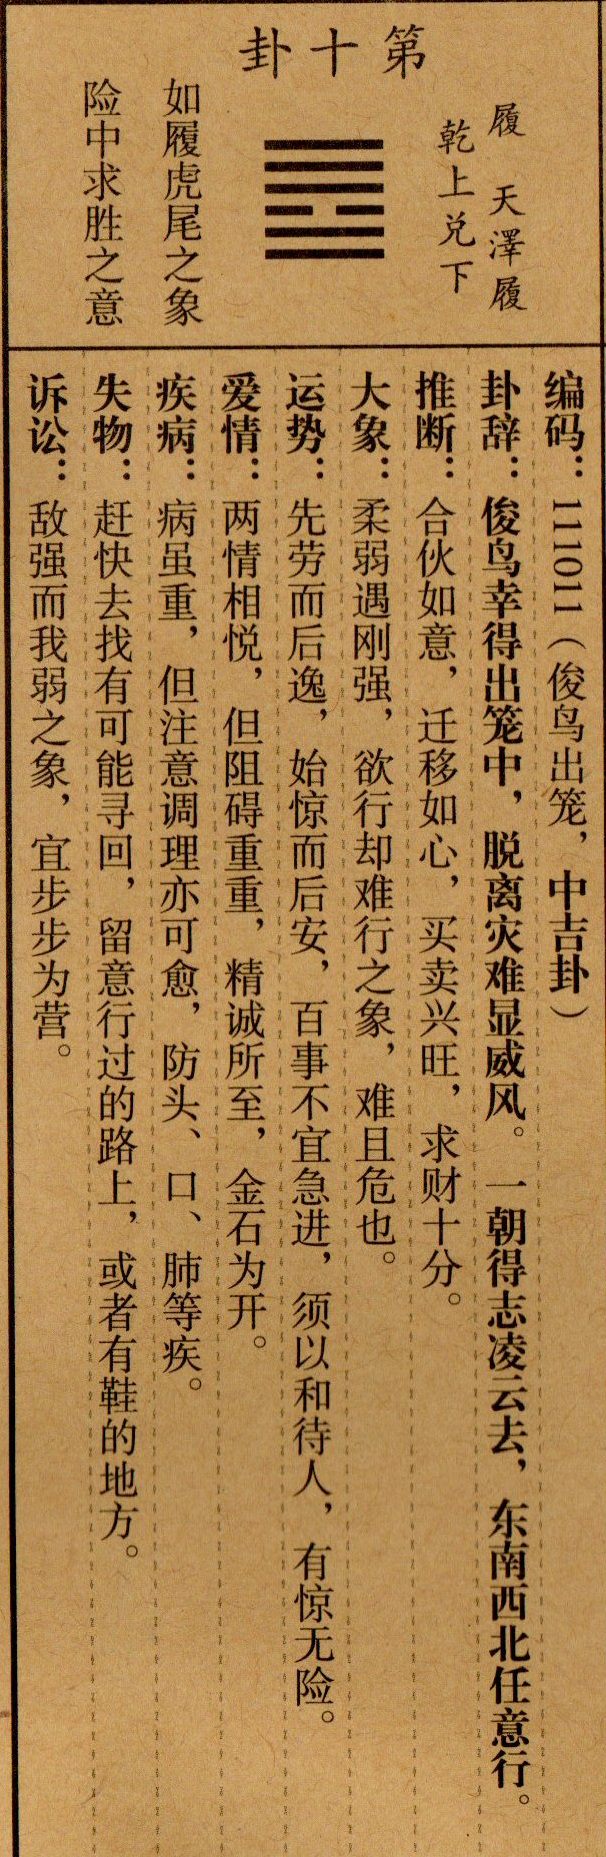 第十卦
履 天澤履
乾上兑下
如履虎尾之象
险中求胜之意
编码：111011（俊鸟出笼，中吉卦）
卦辞：俊鸟幸得出笼中，脱离灾难显威风。一朝得志凌云去，东南西北任意行。
推断：合伙如意，迁移如心，买卖兴旺，求财十分。
大象：柔弱遇刚强，欲行却难行之象，难且危也。
运势：先劳而后逸，始惊而后安，百事不宜急进，须以和待人，有惊无险。
爱情：两情相悦，但阻碍重重，精诚所至，金石为开。
疾病：病虽重，但注意调理亦可愈，防头、口、肺等疾。
失物：赶快去找有可能寻回，留意行过的路上，或者有鞋的地方。
诉讼：敌强而我弱之象，宜步步为营。